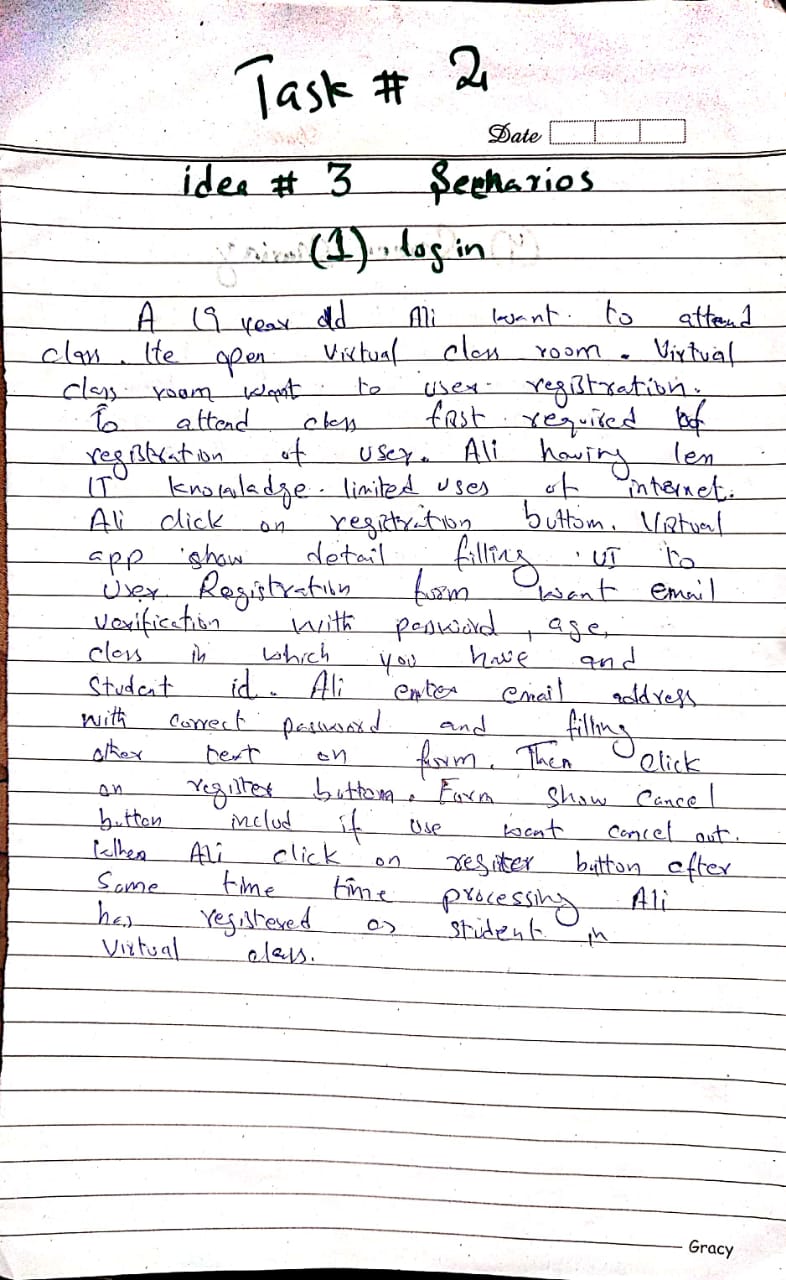 Task # 2
Date
idea # 3 Scenarios
(1). log in
A 19 year old Ali want to attend
class. He open Virtual class room. Virtual
class room want to user registration.
To attend class first required of
registration of user. Ali having less
IT knowladge. limited uses of internet.
Ali click on registration buttom. Virtual
app show detail filling UI to
User Registration form want email
verification with password, age,
class in which you have and
Student id. Ali enter email address
with correct password and filling
other text on form. Then click
on register buttom. Form show Cancel
button includ if use want cancel out.
When Ali click on regiter button after
Some time time processing Ali
has registered as student in
Virtual class.
Gracy